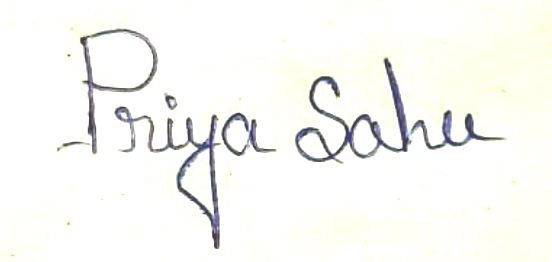 Priya Sahu